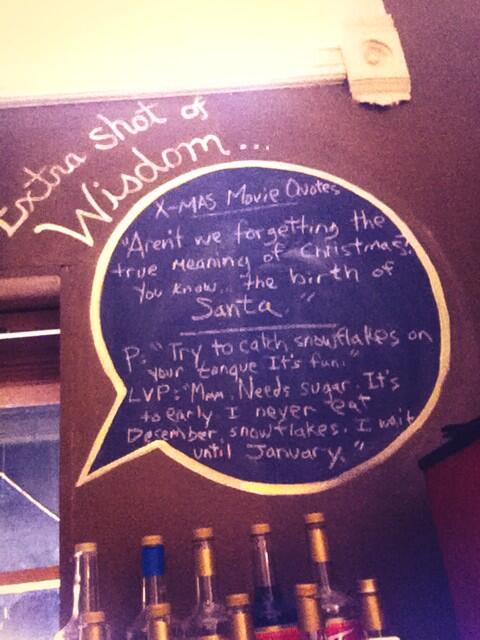 Extra shot of
Wisdom...
X-MAS Movie Quotes
"Aren't we forgetting the
true meaning of Christmas?
You know... the birth of
Santa."
P: "Try to catch snowflakes on
your tongue It's fun."
LVP: "Mmm. Needs sugar. It's
to early I never eat
December snowflakes. I wait
until January."